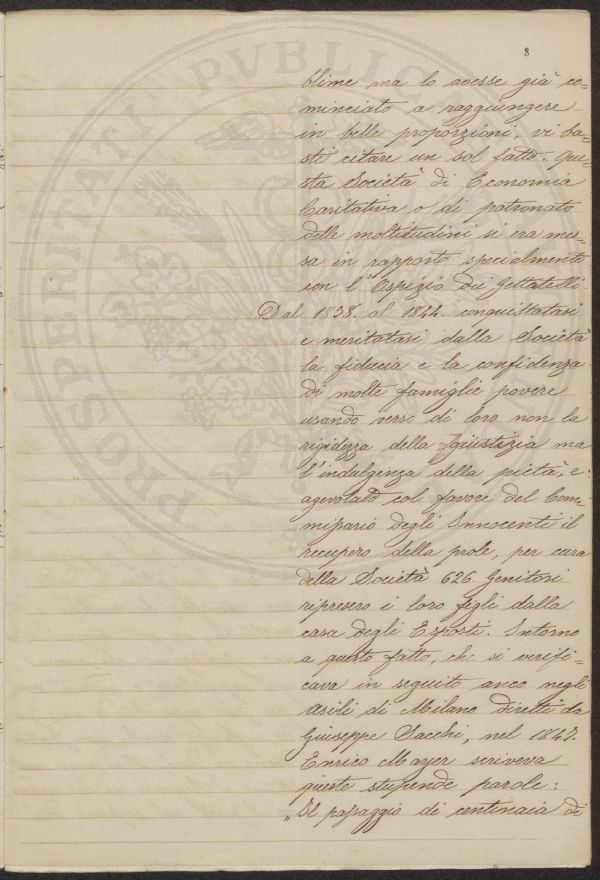 8
blime ma lo avesse già co=
minciato a raggiungere
in belle proporzioni, vi ba=
sti citare un sol fatto. Que=
sta Società di Economia
Caritativa o di patronato
delle moltitudini si era mes=
sa in rapporto specialmente
con l'Ospizio dei Gettatelli.
Dal 1838. al 1844. conquistatasi
e meritatasi dalla Società
la fiducia e la confidenza
di molte famiglie povere
usando verso di loro non la
rigidezza della giustizia ma
l'indulgenza della pietà, e
agevolato col favore del Com=
missario degli Innocenti il
recupero della prole, per cura
della Società 626. Genitori
ripresero i loro figli dalla
casa degli Esposti. Intorno
a questo fatto, che si verifi=
cava in seguito anco negli
Asili di Milano diretti da
Giuseppe Sacchi, nel 1847.
Enrico Mayer scriveva
queste stupende parole:
„Il passaggio di centinaia di
PROSPERITATI PVBLIC